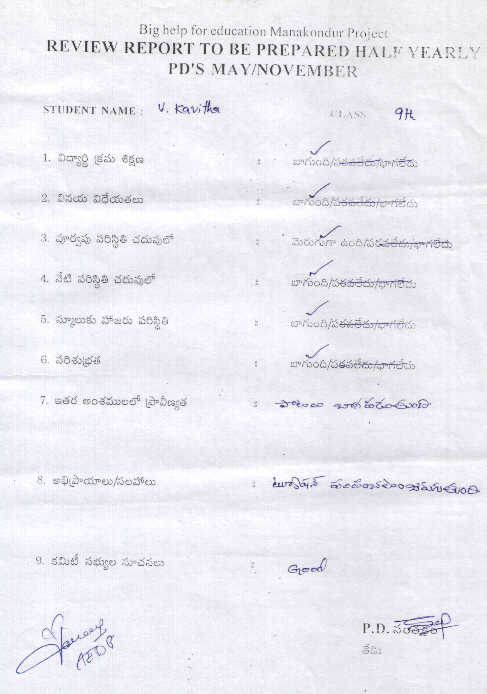 Big help for education Manakondur Project
REVIEW REPORT TO BE PREPARED HALF YEARLY
PD'S MAY/NOVEMBER
STUDENT NAME : V. Kavitha CLASS 9th
1. విద్యార్థి క్రమ శిక్షణ : బాగుంది/పరవలేదు/బాగలేదు
2. వినయ విధేయతలు : బాగుంది/పరవలేదు/బాగలేదు
3. పూర్వపు పరిస్థితి చదువులో : మెరుగుగా ఉంది/పరవలేదు/బాగలేదు
4. నేటి పరిస్థితి చదువులో : బాగుంది/పరవలేదు/బాగలేదు
5. స్కూలుకు హాజరు పరిస్థితి : బాగుంది/పరవలేదు/బాగలేదు
6. పరిశుభ్రత : బాగుంది/పరవలేదు/బాగలేదు
7. ఇతర అంశములలో ప్రావీణ్యత : పాటలు బాగా
8. అభిప్రాయాలు/సలహాలు : ట్యూషన్
9. కమిటీ సభ్యుల సూచనలు : Good
P.D. సంతకం
AEDP తేది